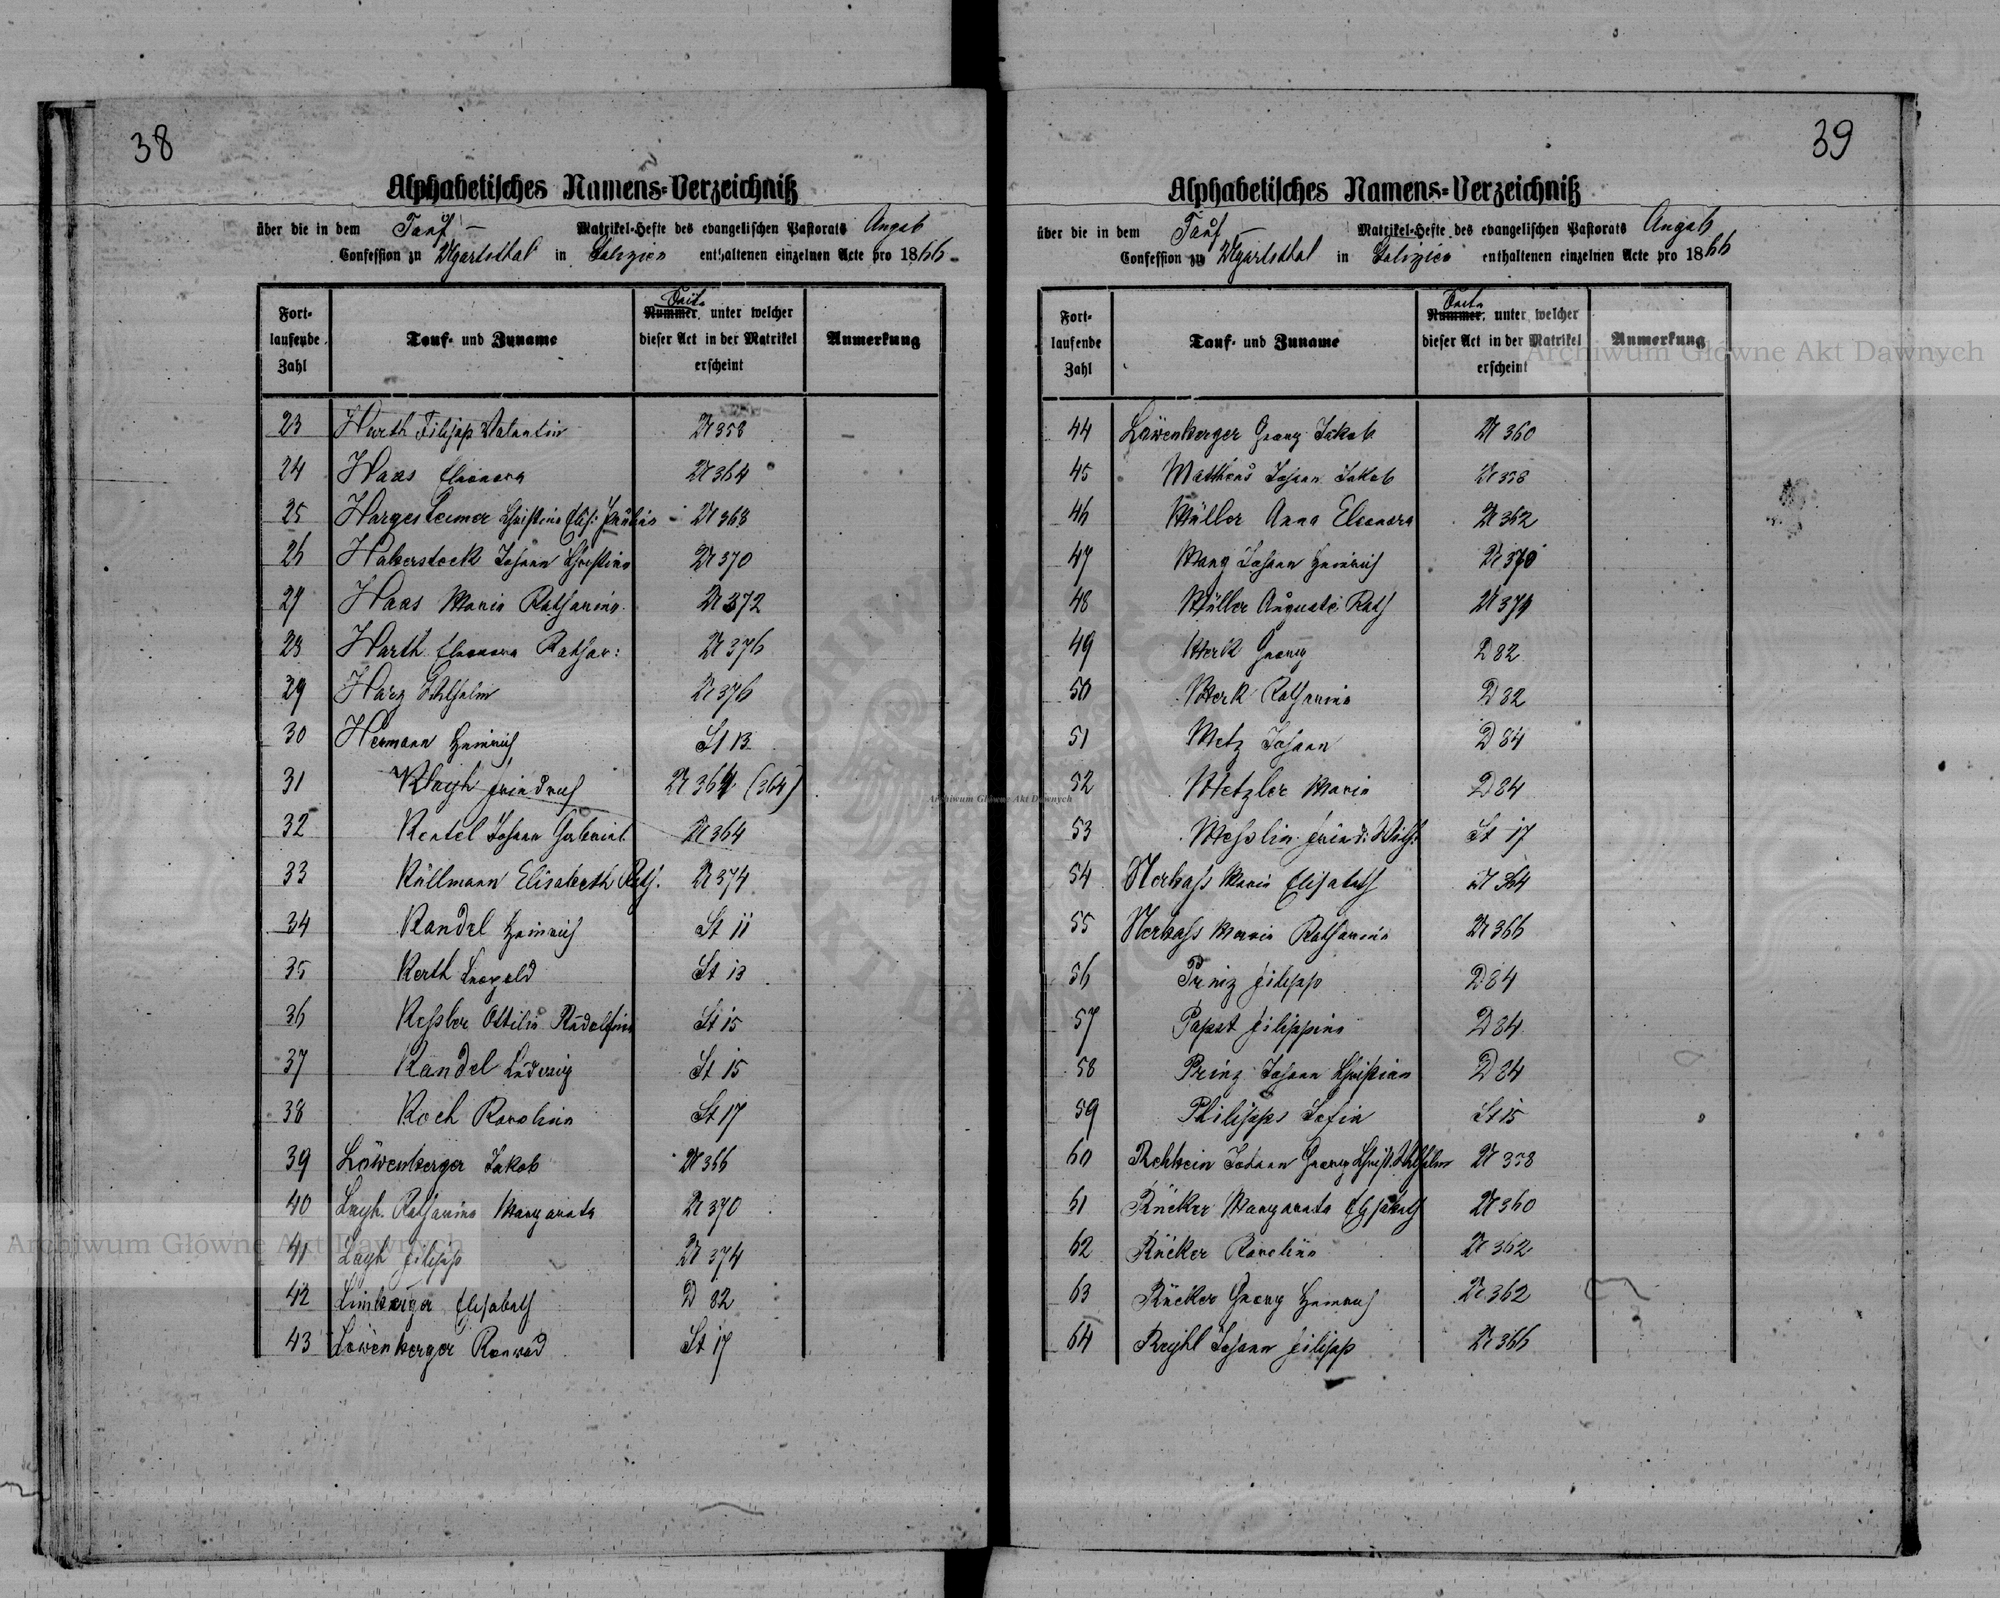 38
Alphabetisches Namens=Verzeichniß
über die in dem Tauf- Matrikel-Hefte des evangelischen Pastorats Augsb
Confession zu Ugartsthal in Galizien enthaltenen einzelnen Acte pro 1866.
Fort-
laufende
Zahl
Tauf- und Zuname
Seite
Nummer, unter welcher
dieser Act in der Matrikel
erscheint
Anmerkung
23 Harth Filipp Valentin U 358
24 Haas Eleonora U 364
25 Hargesheimer Christina Elis: Paulina U 368
26 Haberstock Johann Christian U 370
27 Haas Maria Katharina U 372
28 Harth Eleonora Kathar: U 376
29 Harz Wilhelm U 376
30 Hermann Heinrich St 13
31 Klayh Friedrich U 364 (364)
32 Kentel Johann Gabriel U 364
33 Küllmann Elisabeth Kath. U 374
34 Kandel Heinrich St 11
35 Kerth Leopold St 13
36 Kessler Ottilia Rudolfina St 15
37 Kandel Ludwig St 15
38 Koch Karolina St 17
39 Löwenberger Jakob U 366
40 Layh Katharina Margaretha U 370
41 Layh Filipp U 374
42 Limberger Elisabeth D 82
43 Löwenberger Konrad St 17
39
Alphabetisches Namens=Verzeichniß
über die in dem Tauf- Matrikel-Hefte des evangelischen Pastorats Augsb
Confession zu Ugartsthal in Galizien enthaltenen einzelnen Acte pro 1866
Fort-
laufende
Zahl
Tauf- und Zuname
Seite
Nummer, unter welcher
dieser Act in der Matrikel
erscheint
Anmerkung
44 Löwenberger Georg Jakob U 360
45 Matheus Johann Jakob U 358
46 Müller Anna Eleonora U 362
47 Mang Johann Heinrich U 370
48 Müller Auguste Kath U 374
49 Merk Georg D 82
50 Merk Katharina D 82
51 Metz Johann D 84
52 Metzler Maria D 84
53 Messlin Fried: Wilh: St 17
54 Nerbass Maria Elisabeth U 364
55 Nerbass Maria Katharina U 366
56 Prinz Filipp D 84
57 Papst Filippina D 84
58 Prinz Johann Christian D 84
59 Philipps Sofia St 15
60 Rehbein Johann Georg Christ. Wilhelm U 358
61 Rücker Margaretha Elisabeth U 360
62 Rücker Karolina U 362
63 Rücker Georg Heinrich U 362
64 Reyhl Johann Filipp U 366
Archiwum Główne Akt Dawnych
Archiwum Główne Akt Dawnych
Archiwum Główne Akt Dawnych